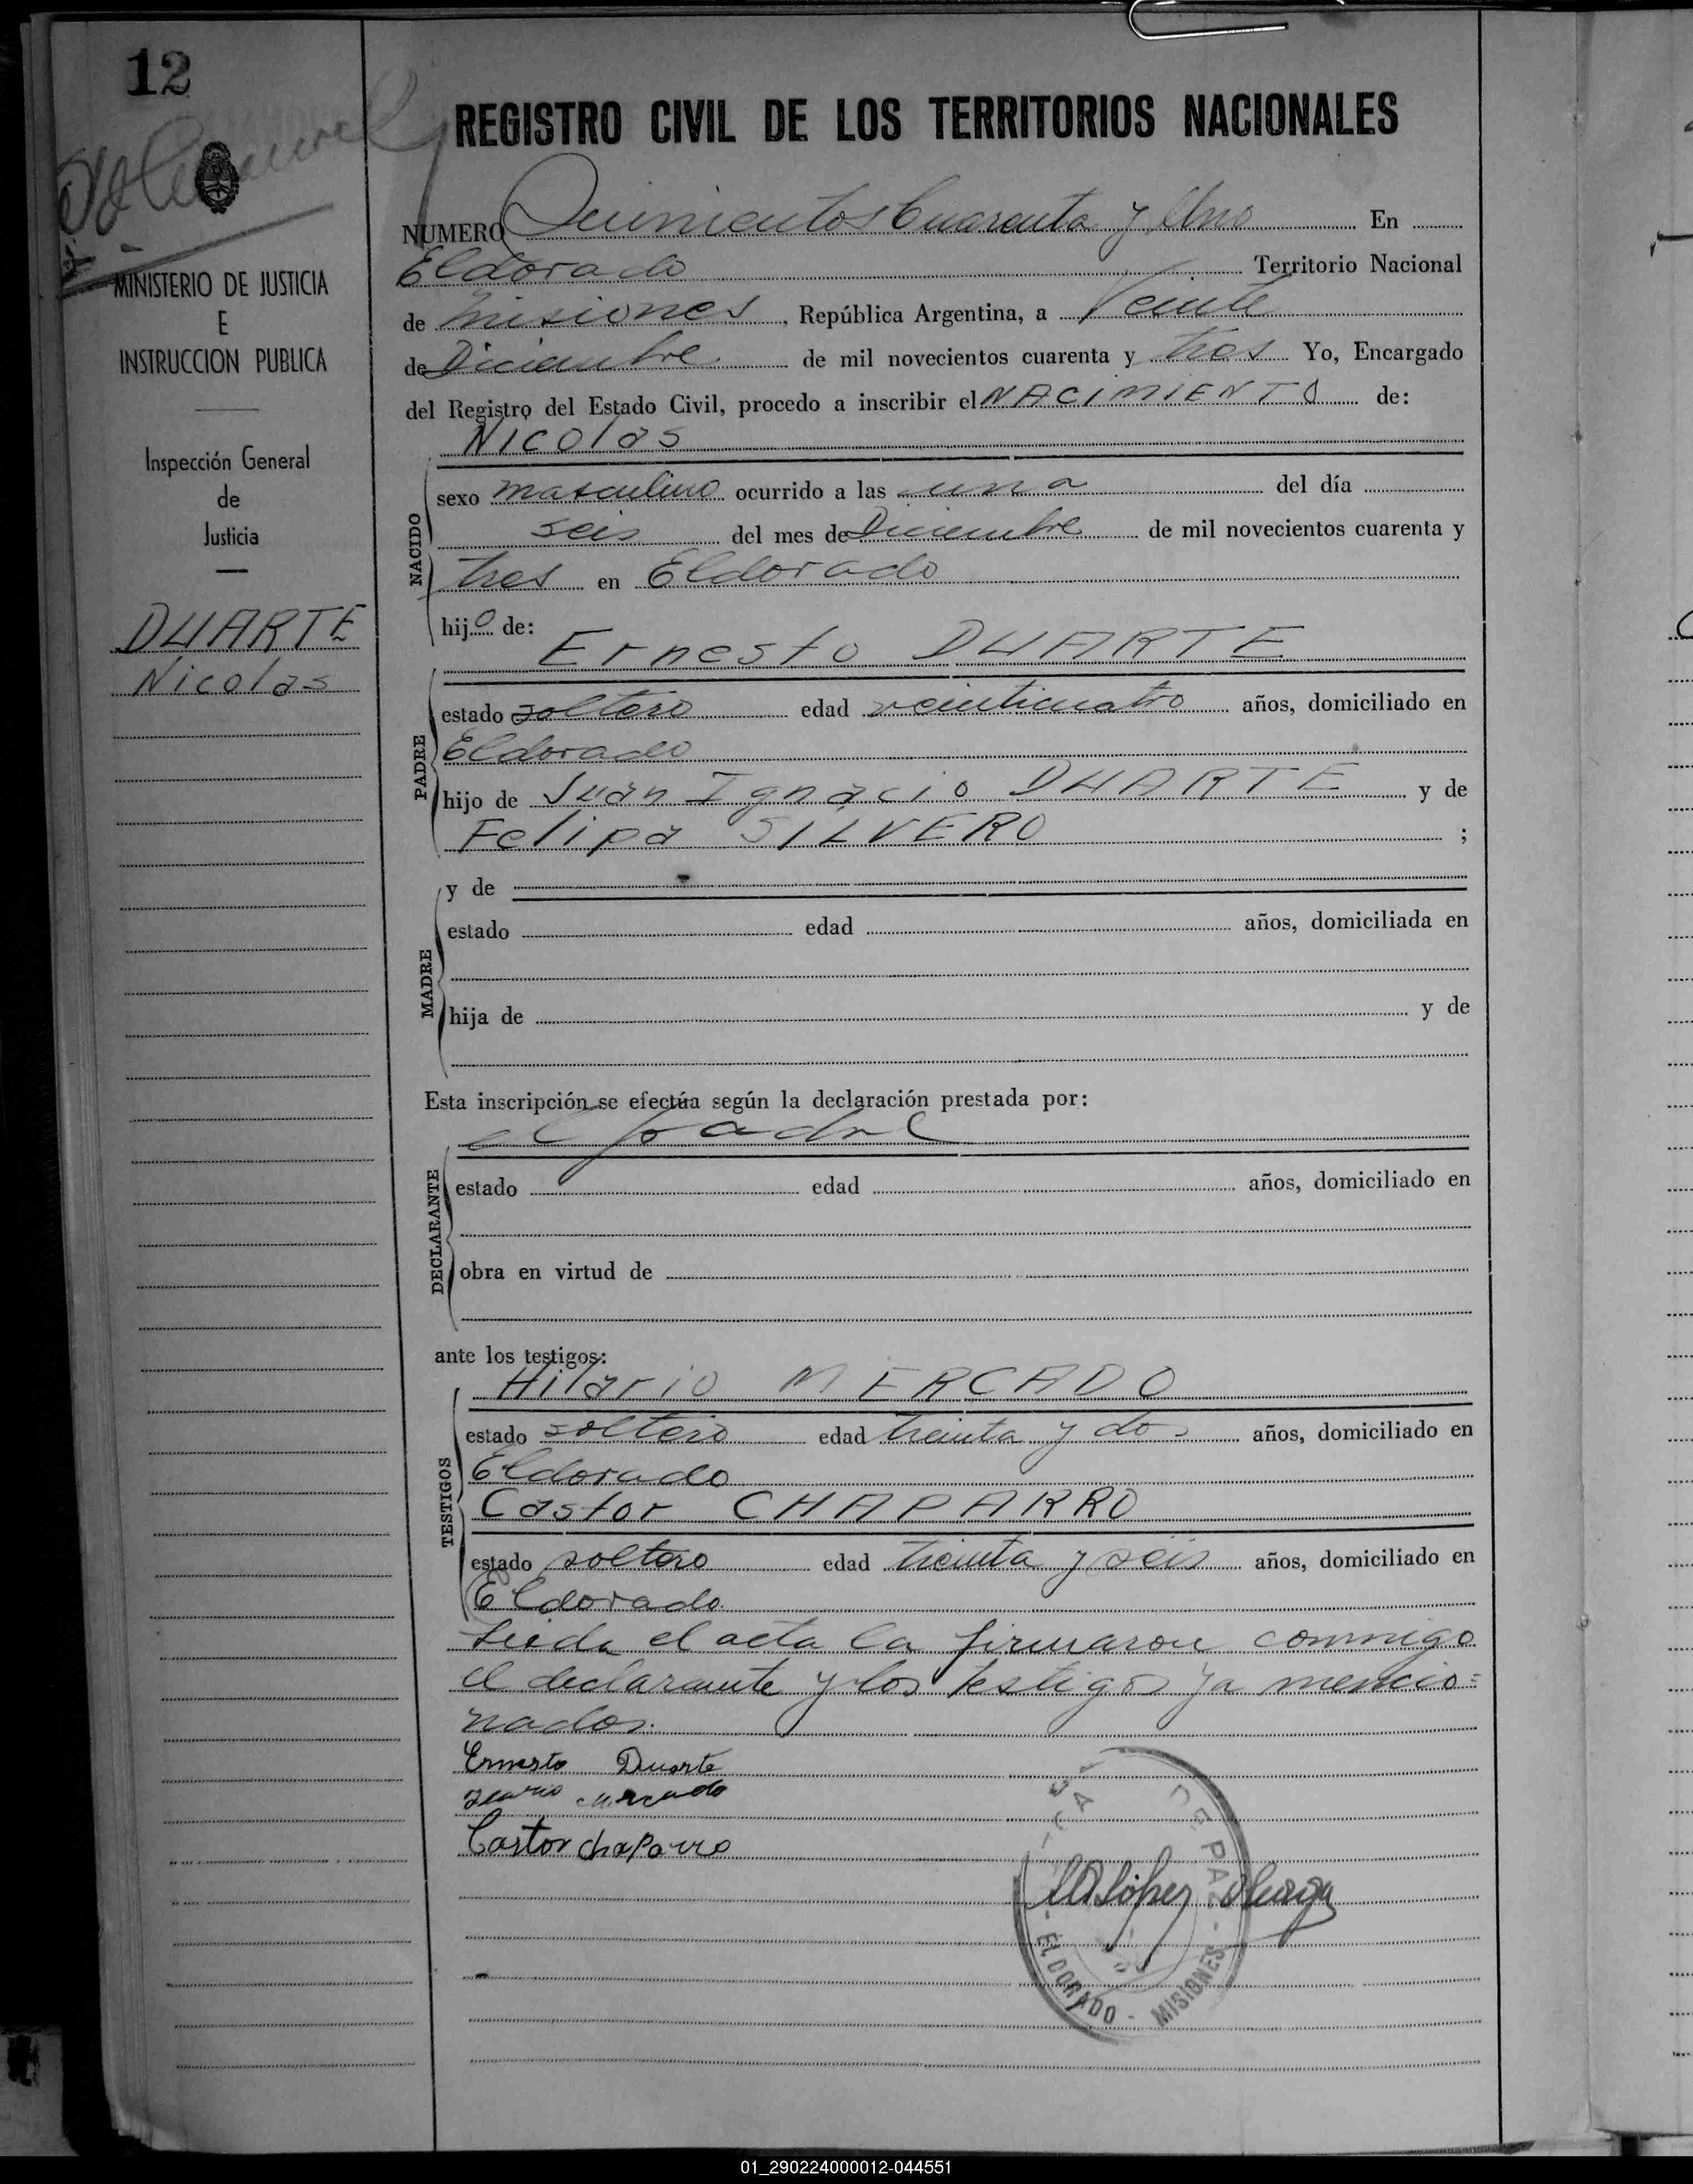 12
REGISTRO CIVIL DE LOS TERRITORIOS NACIONALES
NUMERO Quinientos Cuarenta y Uno En
Eldorado Territorio Nacional
de Misiones, República Argentina, a Veinte
de Diciembre de mil novecientos cuarenta y tres Yo, Encargado
del Registro del Estado Civil, procedo a inscribir el NACIMIENTO de:
Nicolas
MINISTERIO DE JUSTICIA
E
INSTRUCCION PUBLICA
Inspección General
de
Justicia
DUARTE
Nicolas
NACIDO
sexo masculino ocurrido a las una del día
seis del mes de Diciembre de mil novecientos cuarenta y
tres en Eldorado
hijo de:
Ernesto DUARTE
PADRE
estado soltero edad veinticuatro años, domiciliado en
Eldorado
hijo de Juan Ignacio DUARTE y de
Felipa SILVERO ;
MADRE
y de
estado edad años, domiciliada en
hija de y de
Esta inscripción se efectúa según la declaración prestada por:
el padre
DECLARANTE
estado edad años, domiciliado en
obra en virtud de
ante los testigos:
Hilario MERCADO
TESTIGOS
estado soltero edad treinta y dos años, domiciliado en
Eldorado
Castor CHAPARRO
estado soltero edad treinta y seis años, domiciliado en
Eldorado
Leida el acta la firmaron conmigo
el declarante y los testigos ya mencio=
nados.
Ernesto Duarte
Mercado
Castor chaParro
López
DE PAZ
- ELDORADO - MISIONES
01_290224000012-044551